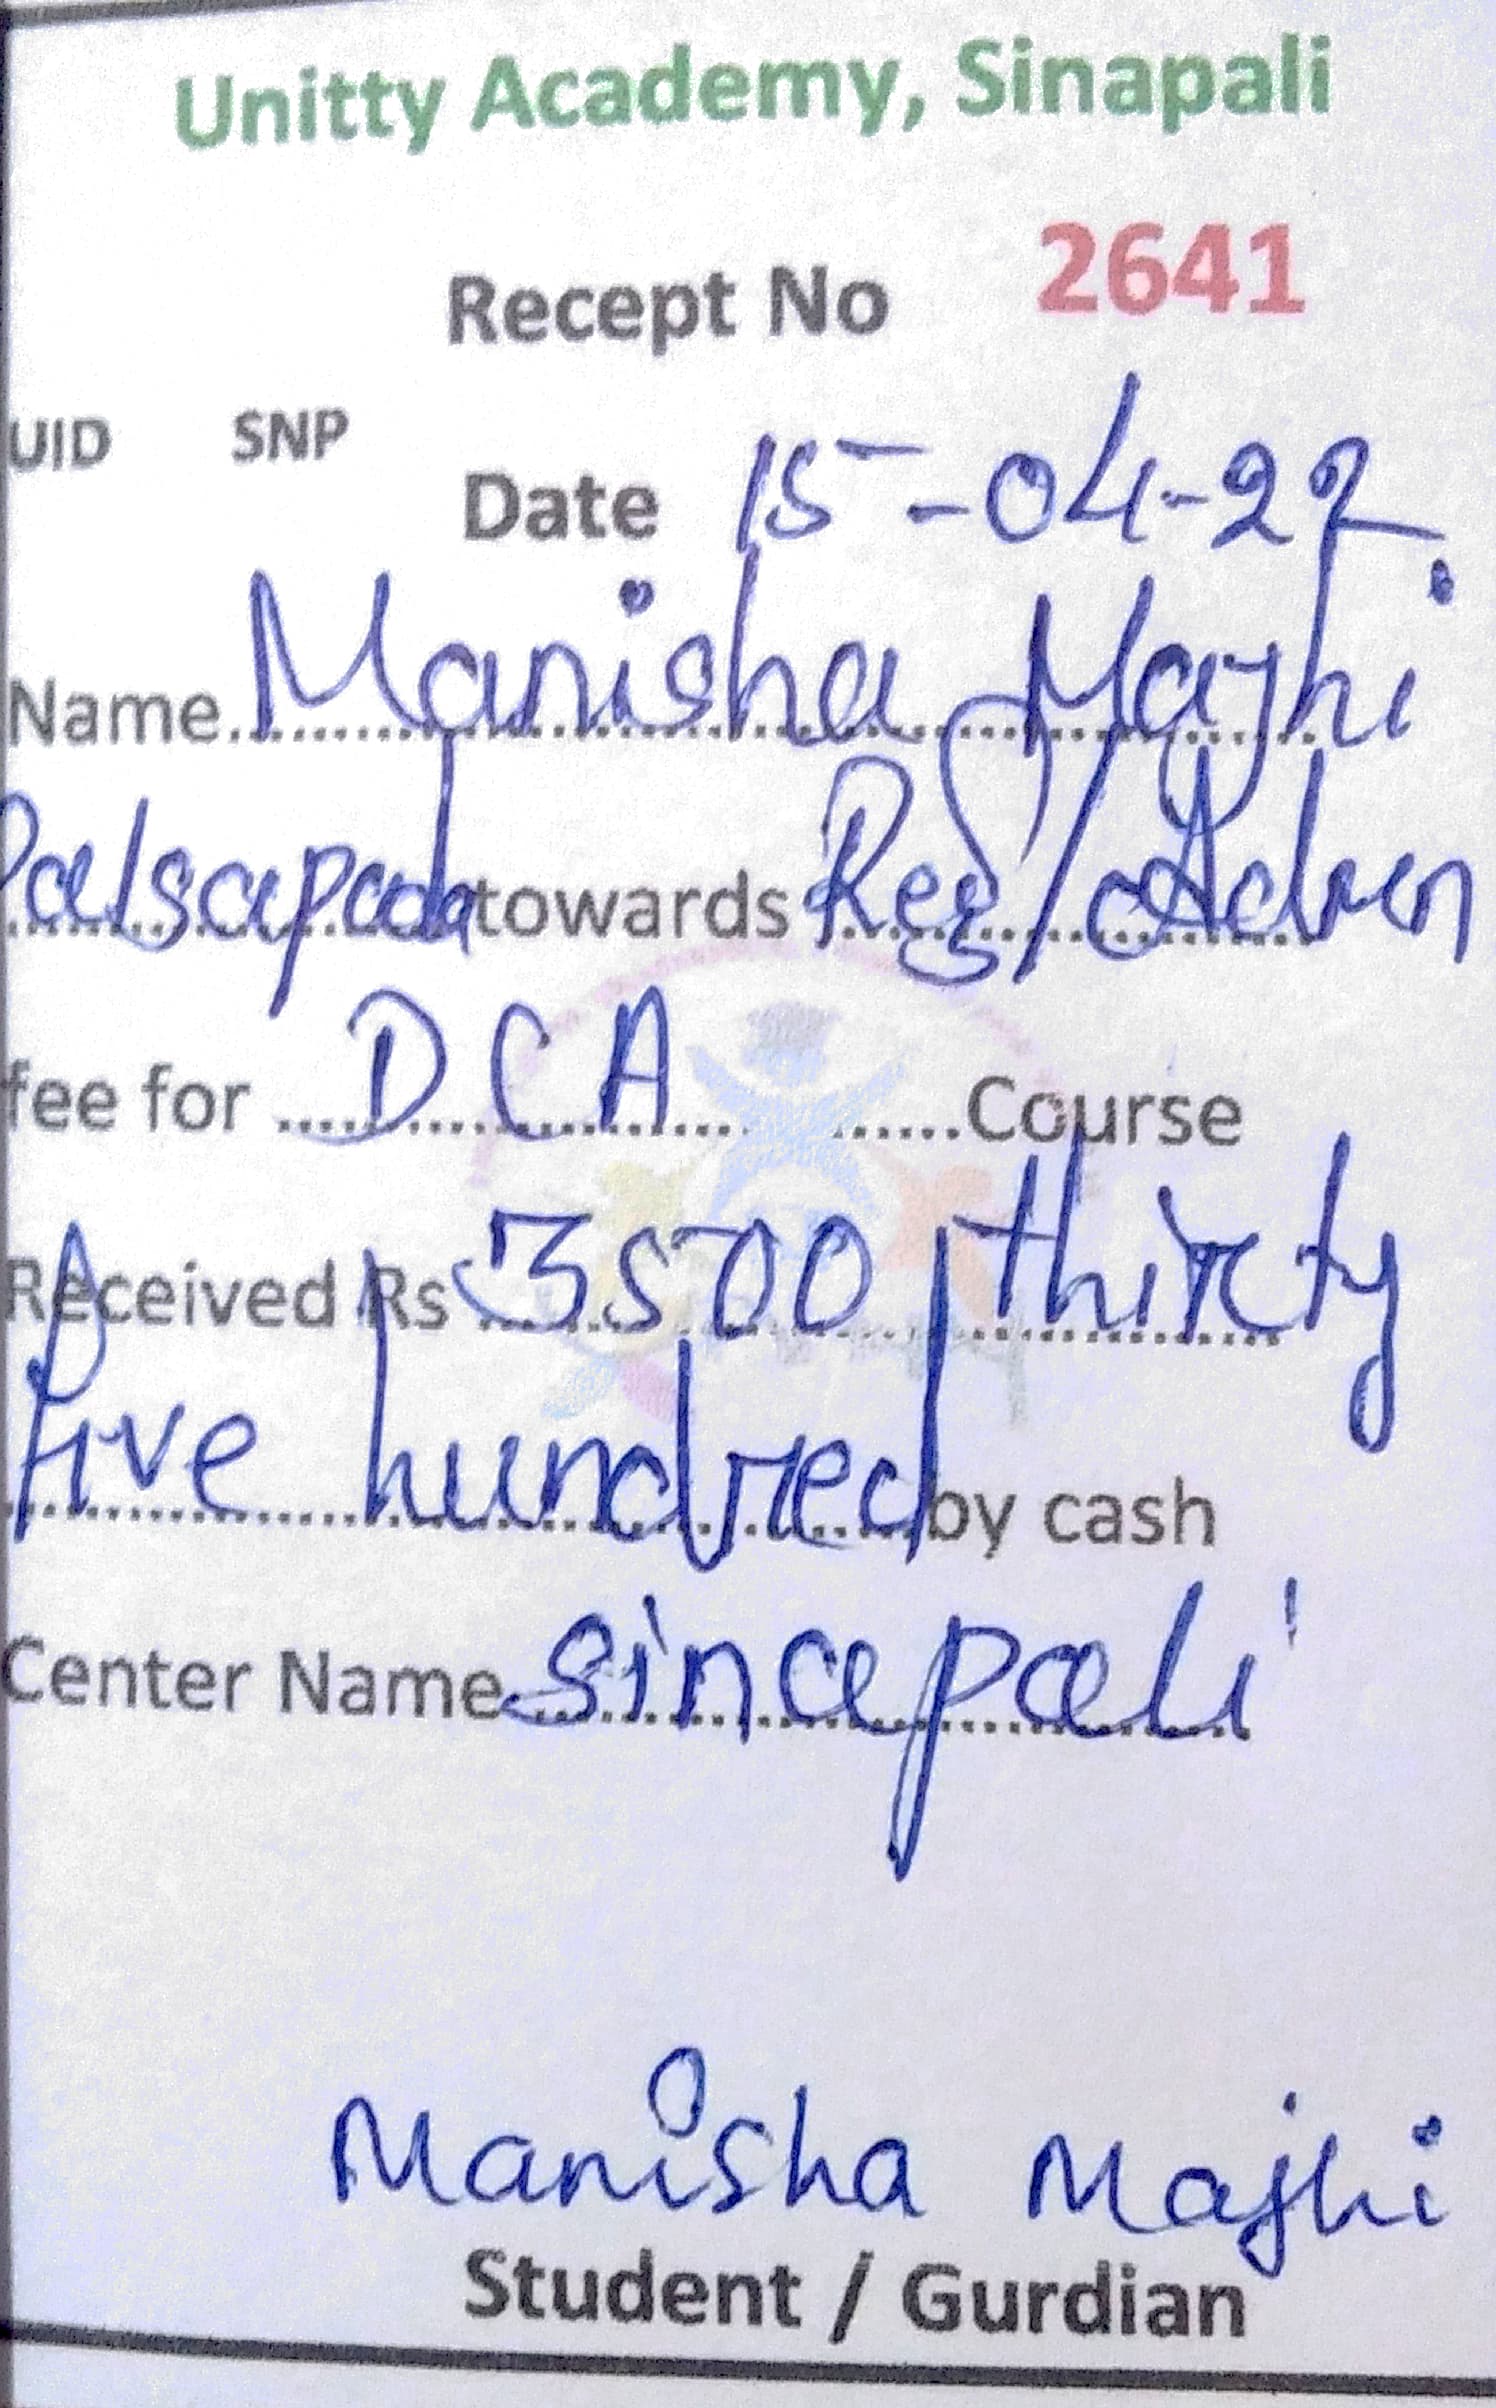 Unitty Academy, Sinapali
Recept No 2641
UID SNP
Date 15-04-22
Name Manisha Majhi
Palsapada towards Reg/Admn
fee for DCA Course
Received Rs 3500 thirty
five hundred by cash
Center Name sinapali
Manisha Majhi
Student / Gurdian